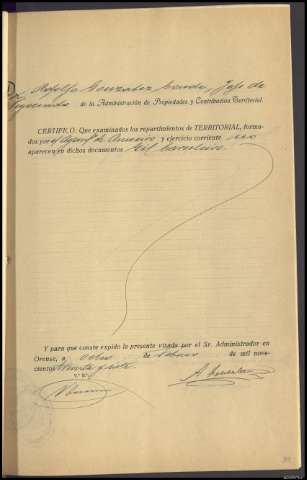 Adolfo Gonzalez Conde, Jefe de
de la Administración de Propiedades y Contribución Territorial.
CERTIFICO: Que examinados los repartimientos de TERRITORIAL, forma-
dos por el Ayunt. de y ejercicio corriente no
aparecen en dichos documentos
Y para que conste expido la presente visada por el Sr. Administrador en
Orense, a ocho de Febrero de mil nove-
cientos veinte y siete
V.º B.º